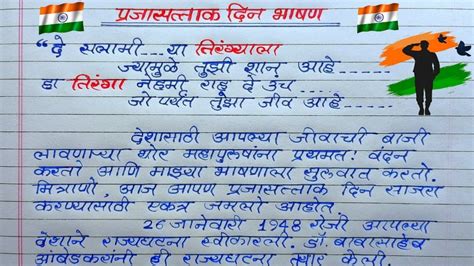 प्रजासत्ताक दिन भाषण
“दे सलामी....या तिरंग्याला
ज्यामुळे तुझी शान आहे.....
हा तिरंगा नेहमी राहू दे उंच....
जो पर्यंत तुझा जीव आहे.....
देशासाठी आपल्या जीवाची बाजी
लावणाऱ्या थोर महापुरुषांना प्रथमतः वंदन
करतो आणि माझ्या भाषणाला सुरुवात करतो.
मित्रांणो, आज आपण प्रजासत्ताक दिन साजरा
करण्यासाठी एकत्र जमलो आहोत.
26 जानेवारी 1948 रोजी आपल्या
देशाने राज्यघटना स्वीकारली. डॉ. बाबासाहेब
आंबेडकरांनी ही राज्यघटना तयार केली.